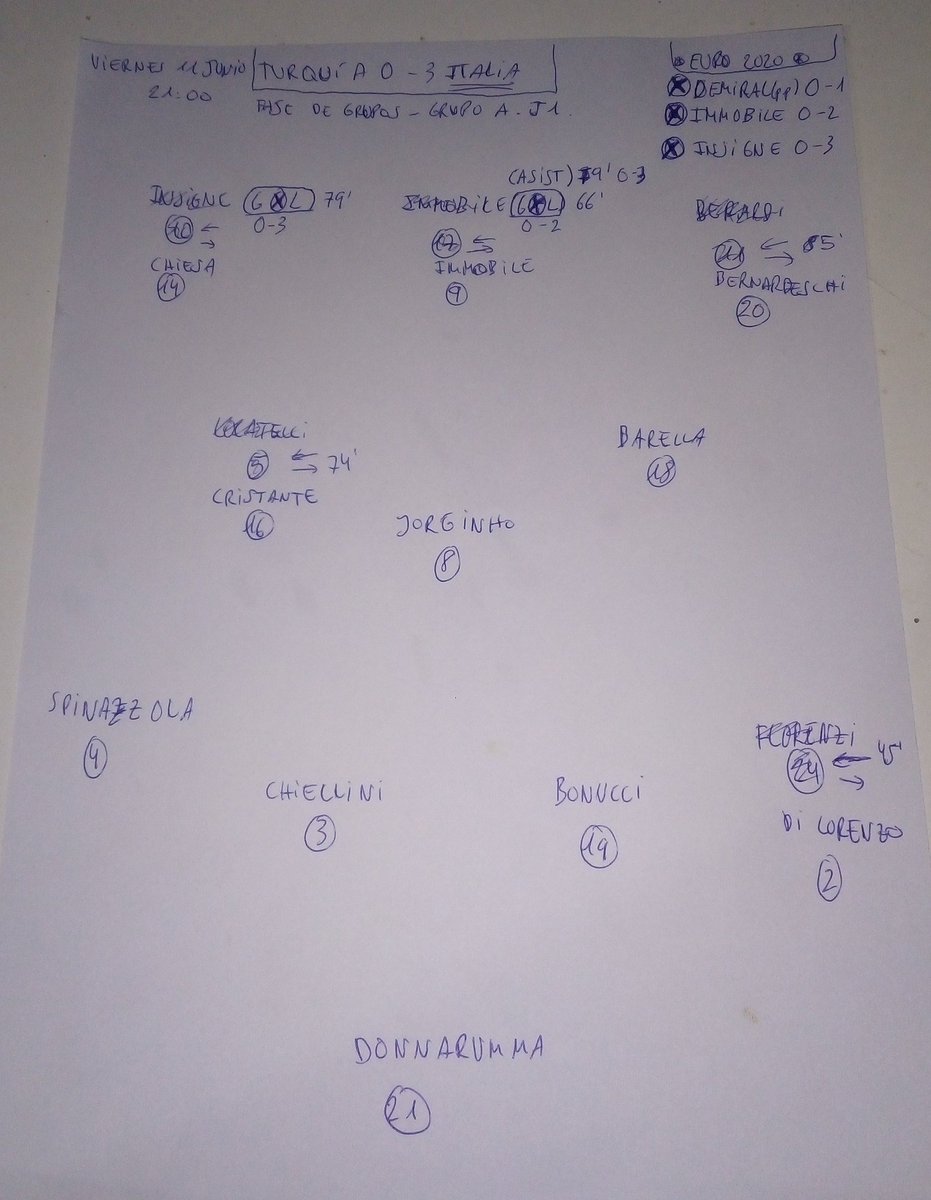 VIERNES 11 JUNIO
21:00
TURQUÍA 0 - 3 ITALIA
FASE DE GRUPOS - GRUPO A - J1.
EURO 2020
DEMIRAL (pp) 0-1
IMMOBILE 0-2
INSIGNE 0-3
INSIGNE GOL 79'
0-3
10
CHIESA
14
(ASIST) 79' 0-3
IMMOBILE GOL 66'
0-2
17
IMMOBILE
9
BERARDI
85'
BERNARDESCHI
20
LOCATELLI
5 74'
CRISTANTE
16
BARELLA
18
JORGINHO
8
SPINAZZOLA
4
CHIELLINI
3
BONUCCI
19
FLORENZI
24 45'
DI LORENZO
2
DONNARUMMA
21